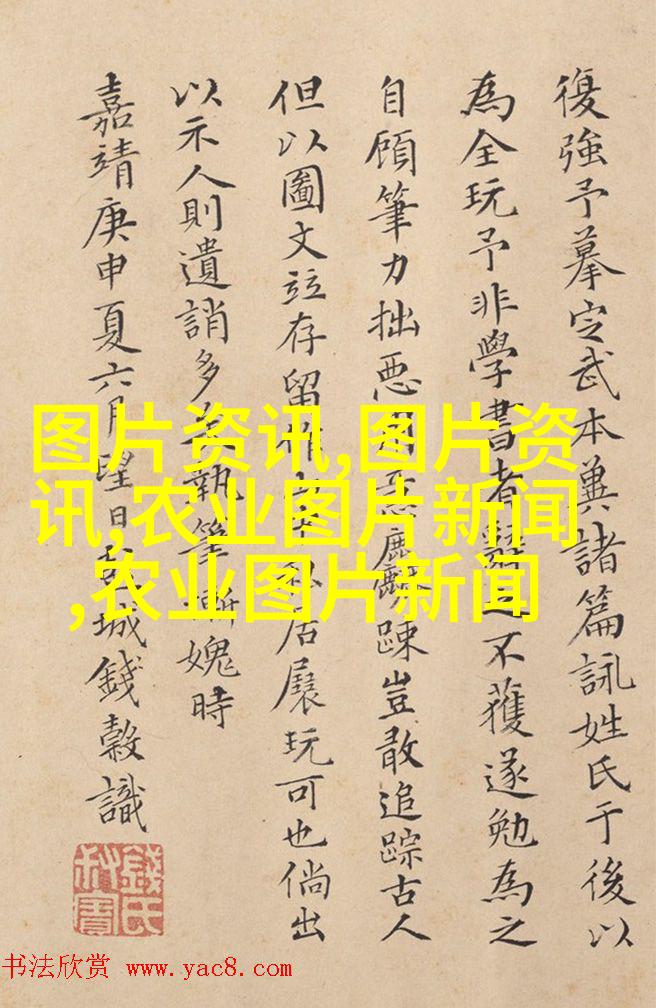 復強予摹定武本兼諸篇詠姓氏于後以
為全玩予非學書者辭之不獲遂勉為之
自顧筆力拙惡麤踈豈敢追踪古人
但以圖文竝存留居展玩可也倘出
以示人則遺誚多矣執筆慚媿時
嘉靖庚申夏六月望日彭城錢穀識
錢氏
图片资讯,图片资
讯,农业图片新闻
,农业图片新闻
书法欣赏 www.yac8.com